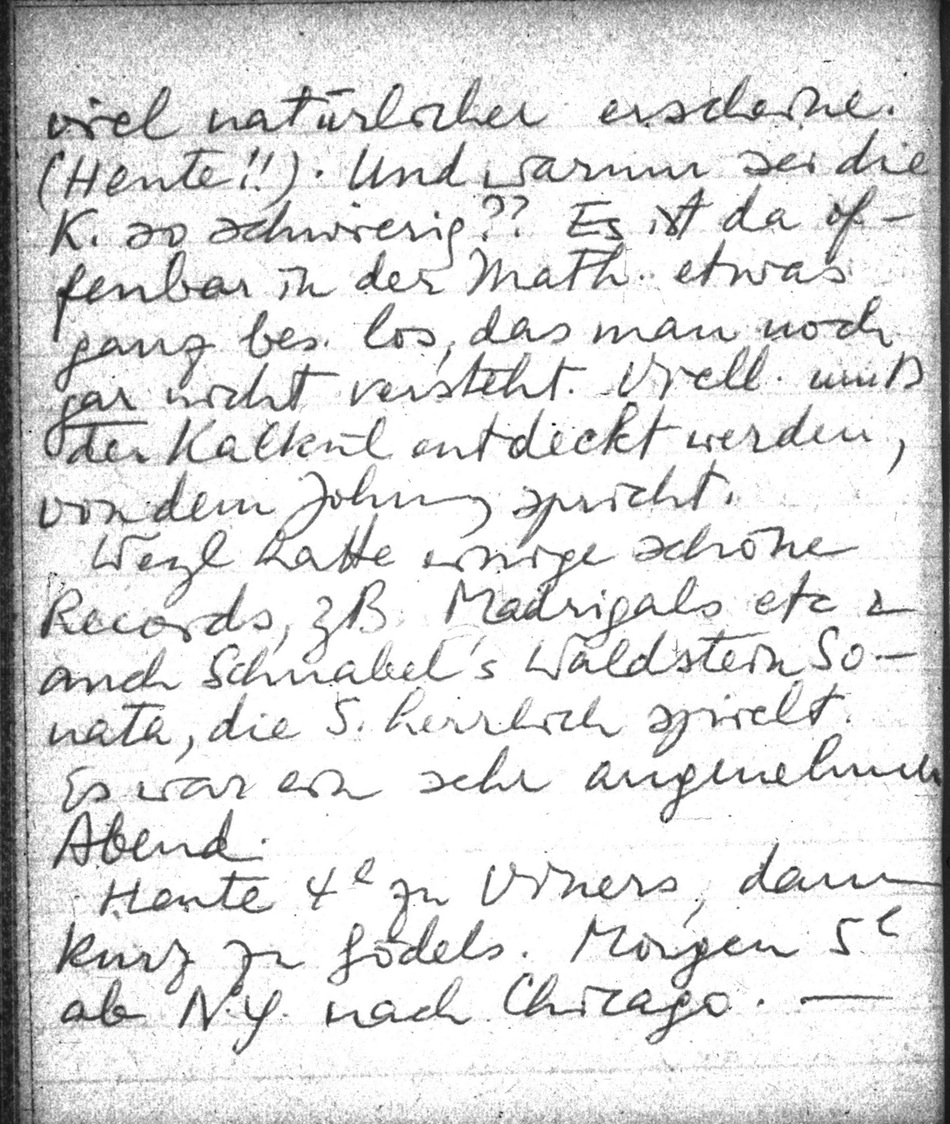 viel natürlicher erscheine.
(Heute!!). Und warum sei die
K. so schwierig?? Es ist da of-
fenbar in der Math. etwas
ganz bes. los, das man noch
gar nicht versteht. Viell. muß
der Kalkül entdeckt werden,
von dem Johnny spricht.
Weyl hatte einige schöne
Records, zB. Madrigals etc &
auch Schnabel's Waldstein So-
nata, die S. herrlich spielt.
Es war ein sehr angenehmer
Abend.
Heute 4h zu Viners, dann
kurz zu Gödels. Morgen 5h
ab N.Y. nach Chicago. —